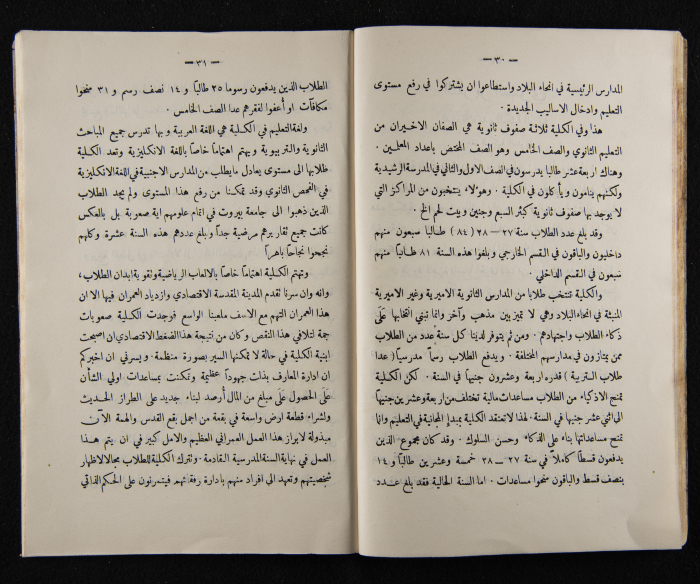 — ٣٠ —
المدارس الرئيسية في انحاء البلاد واستطاعوا ان يشتركوا في رفع مستوى
التعليم وادخال الاساليب الجديدة .
هذا وفي الكلية ثلاثة صفوف ثانوية هي الصفان الاخيران من
التعليم الثانوي والصف الخامس وهو الصف المختص باعداد المعلمين .
وهناك اربعة عشر طالبا يدرسون في الصف الاول والثاني في المدرسة الرشيدية
ولكنهم ينامون ويأكلون في الكلية . وهؤلاء ينتخبون من المراكز التي
لا يوجد بها صفوف ثانوية كبئر السبع وجنين وبيت لحم الخ .
وقد بلغ عدد الطلاب سنة ٣٧ — ٣٨ (٨٤) طالبا سبعون منهم
داخليون والباقون في القسم الخارجي وبلغوا هذه السنة ٨١ طالباً منهم
سبعون في القسم الداخلي .
والكلية تنتخب طلابا من المدارس الثانوية الاميرية وغير الاميرية
المنبثة في انحاء البلاد وهي لا تميز بين مذهب وآخر وانما تبني انتخابها عَلَى
ذكاء الطلاب واجتهادهم . ومن ثم يتوفر لدينا كل سنة عدد من الطلاب
ممن يمتازون في مدارسهم المختلفة . ويدفع الطلاب رسماً مدرسياً (عدا
طلاب التربية) قدره اربعة وعشرون جنيهاً في السنة . لكن الكلية
تمنح الاذكياء من الطلاب مساعدات مالية تختلف من اربعة وعشرين جنيهاً
الى اثني عشر جنيها في السنة . لهذا لا تعتقد الكلية بمبدإ المجانية في التعليم وانما
تمنح مساعداتها بناء على الذكاء وحسن السلوك . وقد كان مجموع الذين
يدفعون قسطاً كاملاً في سنة ٣٧ — ٣٨ خمسة وعشرين طالباً و ١٤
بنصف قسط والباقون منحوا مساعدات . اما السنة الحالية فقد بلغ عدد
— ٣١ —
الطلاب الذين يدفعون رسوما ٢٥ طالباً و ١٤ نصف رسم و ٣١ منحوا
مكافآت او أعفوا لفقرهم عدا الصف الخامس .
ولغة التعليم في الكلية هي اللغة العربية وبها تدرس جميع المباحث
الثانوية والتربوية ويهتم اهتماماً خاصاً باللغة الانكليزية وتعد الكلية
طلابها الى مستوى يعادل ما يطلب من المدارس الاجنبية في اللغة الانكليزية
في الفحص الثانوي وقد تمكنا من رفع هذا المستوى ولم يجد الطلاب
الذين ذهبوا الى جامعة بيروت في اتمام علومهم اية صعوبة . بل بالعكس
كانت جميع تقاريرهم مرضية جداً وبلغ عددهم هذه السنة عشرة وكلهم
نجحوا نجاحاً باهراً
وتهتم الكلية اهتماماً خاصاً بالالعاب الرياضية وتقوية ابدان الطلاب،
وانه وان سرنا تقدم المدينة المقدسة الاقتصادي وازدياد العمران فيها الا ان
هذا العمران التهم مع الاسف ملعبنا الواسع فوجدت الكلية صعوبات
جمة لتلافي هذا النقص وكان من نتيجة هذا الضغط الاقتصادي ان اصبحت
ابنية الكلية في حالة لا تمكنها السير بصورة منظمة . ويسرني ان اخبركم
ان ادارة المعارف بذلت جهوداً عظيمة وتمكنت بمساعدات اولي الشأن
عَلَى الحصول عَلَى مبلغ من المال أرصد لبناء جديد على الطراز الحديث
ولشراء قطعة ارض واسعة في بقعة من اجمل بقع القدس والهمة الآن
مبذولة لابراز هذا العمل العمراني العظيم والامل كبير في ان يتم هذا
العمل في نهاية السنة المدرسية القادمة . وتترك الكلية للطلاب مجالا لاظهار
شخصيتهم وتعهد الى افراد منهم بادارة رفقائهم فيتمرنون على الحكم الذاتي